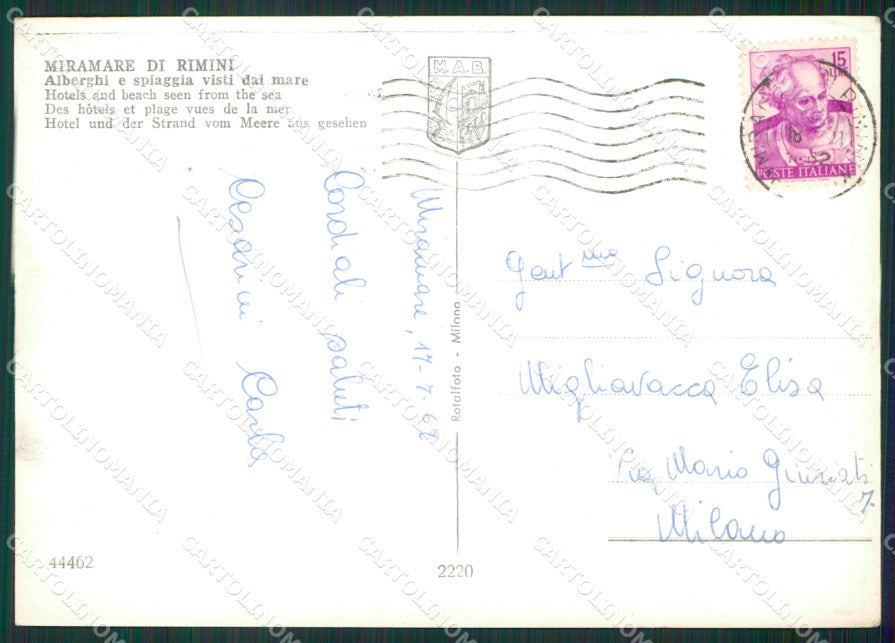 MIRAMARE DI RIMINI
Alberghi e spiaggia visti dal mare
Hotels and beach seen from the sea
Des hôtels et plage vues de la mer
Hotel und der Strand vom Meere aus gesehen
M.A.B.
15
POSTE ITALIANE
Miramare, 17-7.62
Cordiali saluti
Cesarini Carla
Rotalfoto - Milano
Gent.ma Signora
Migliavacca Elisa
Via Mario Giuriati
7
Milano
44462
2220
CARTOLINOMANIA